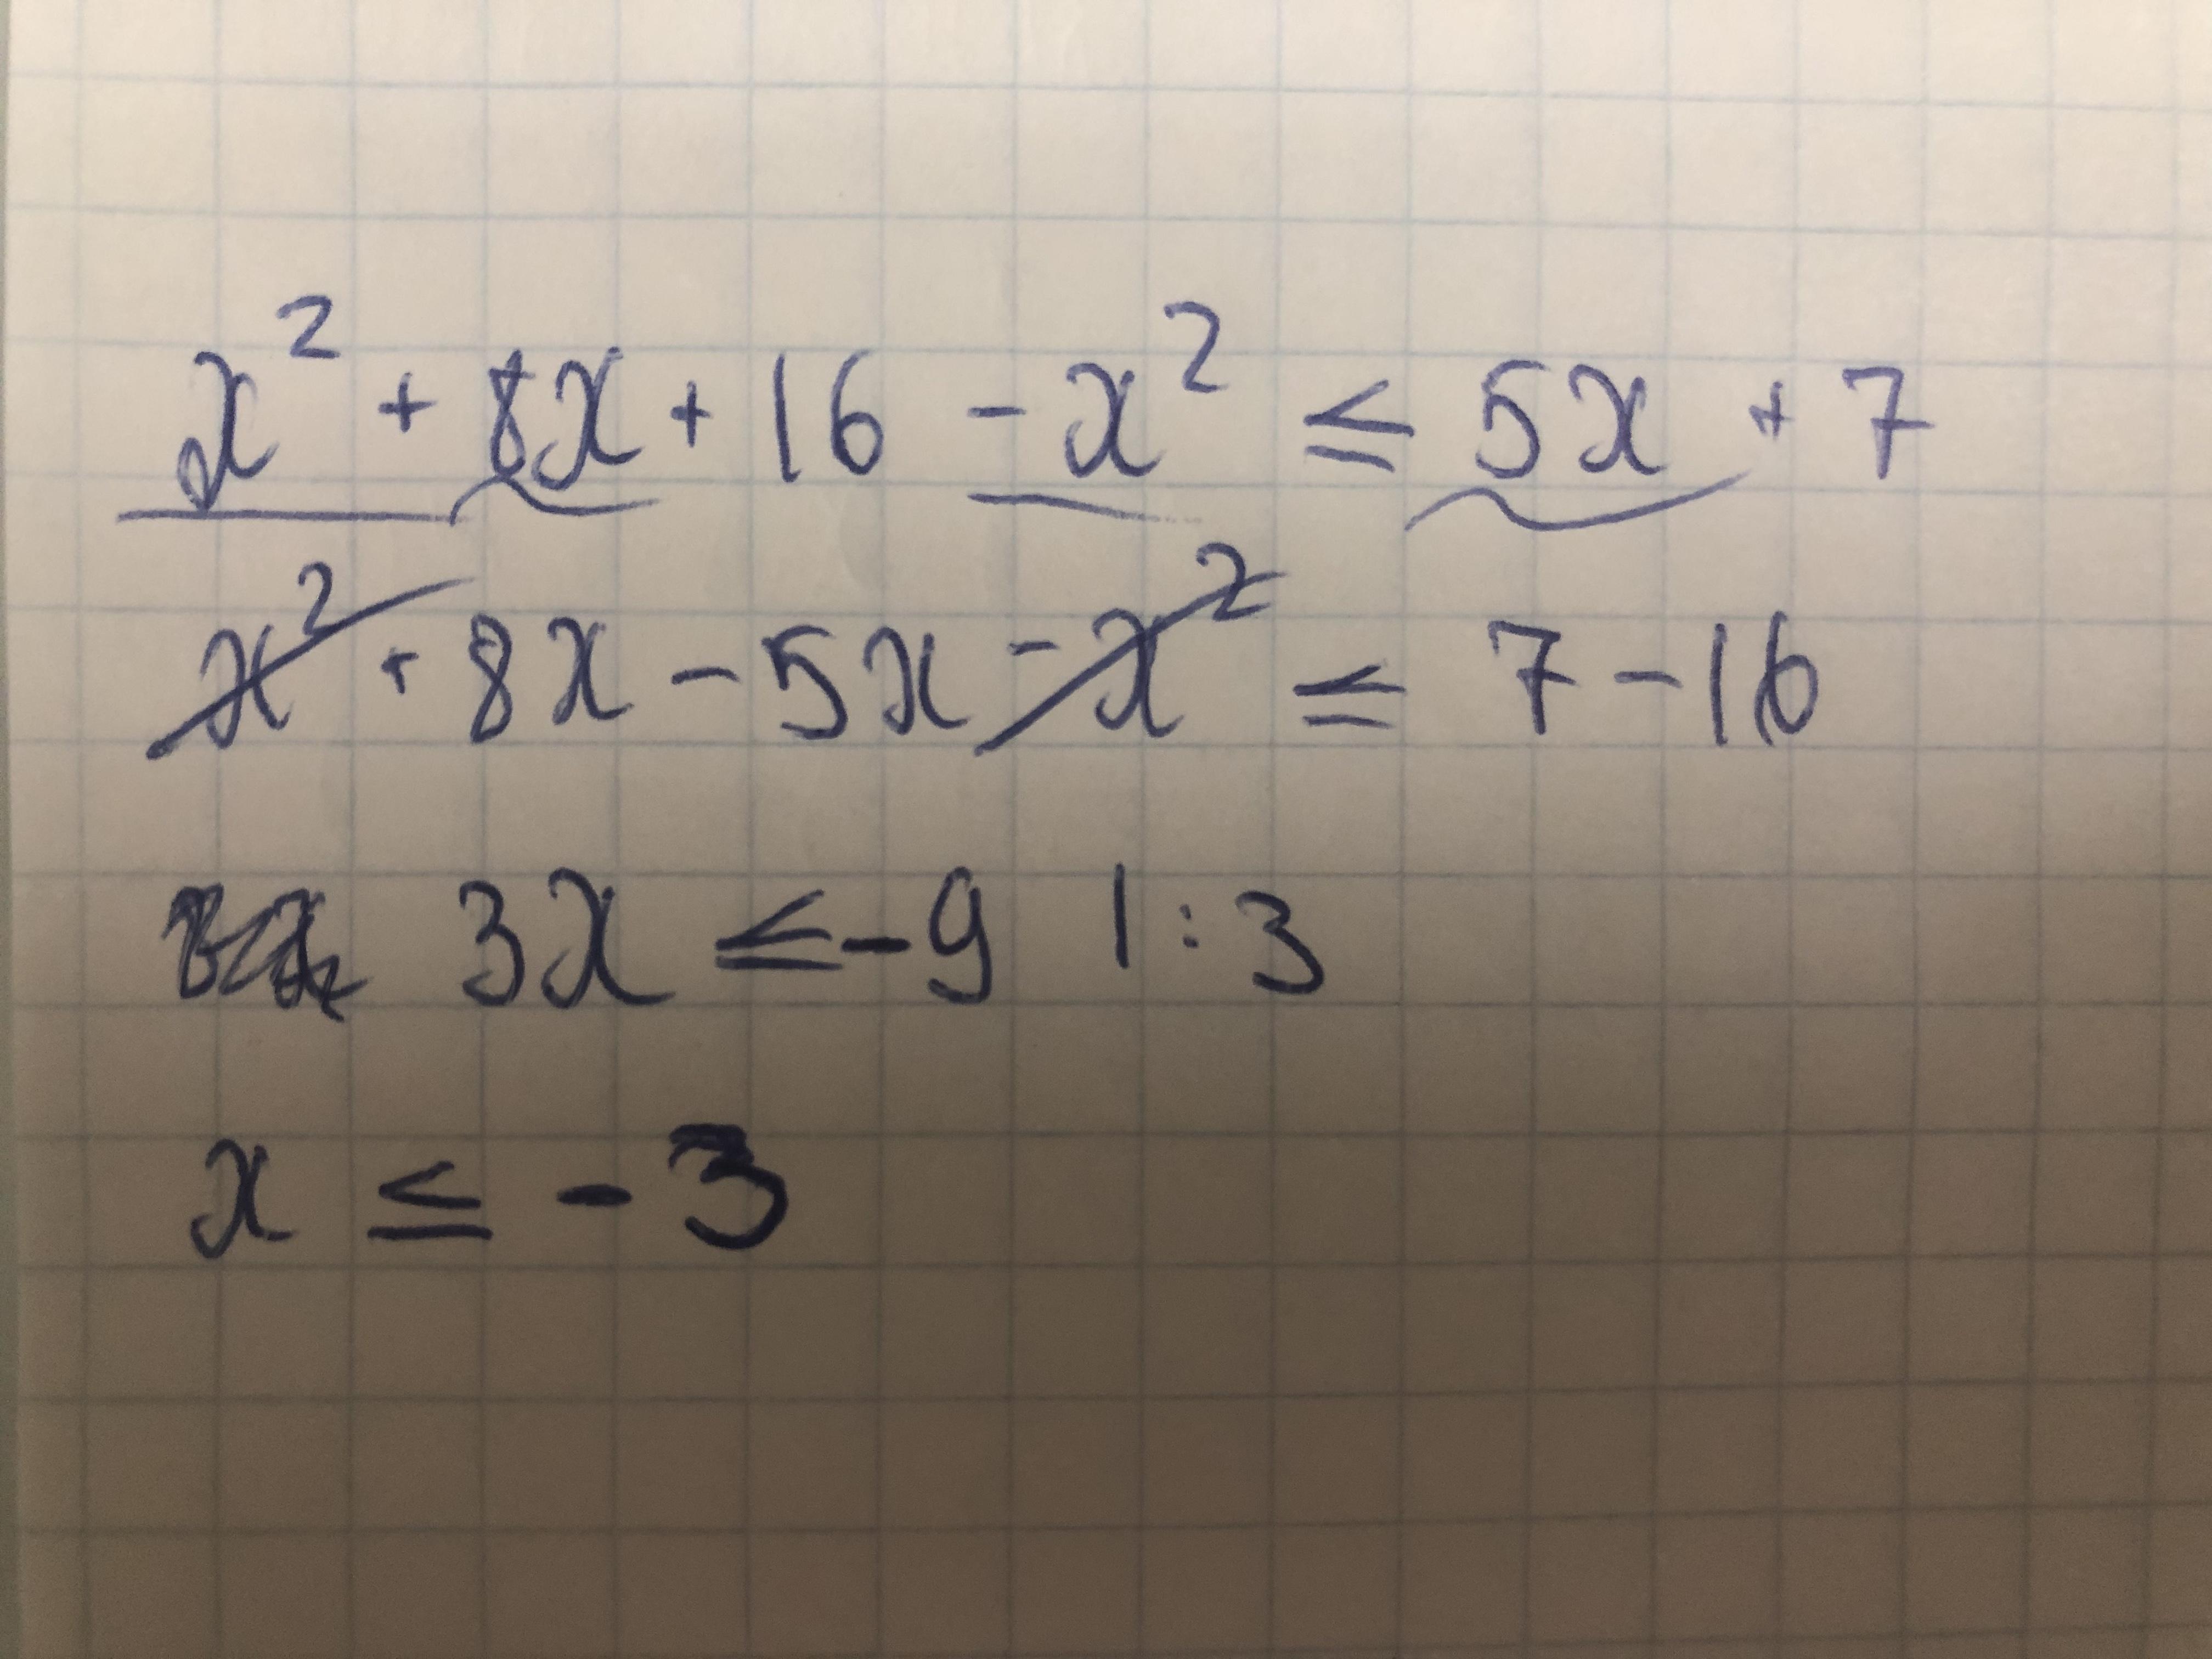 x² + 8x + 16 - x² ≤ 5x + 7
x² + 8x - 5x - x² ≤ 7 - 16
3x ≤ -9 | : 3
x ≤ -3